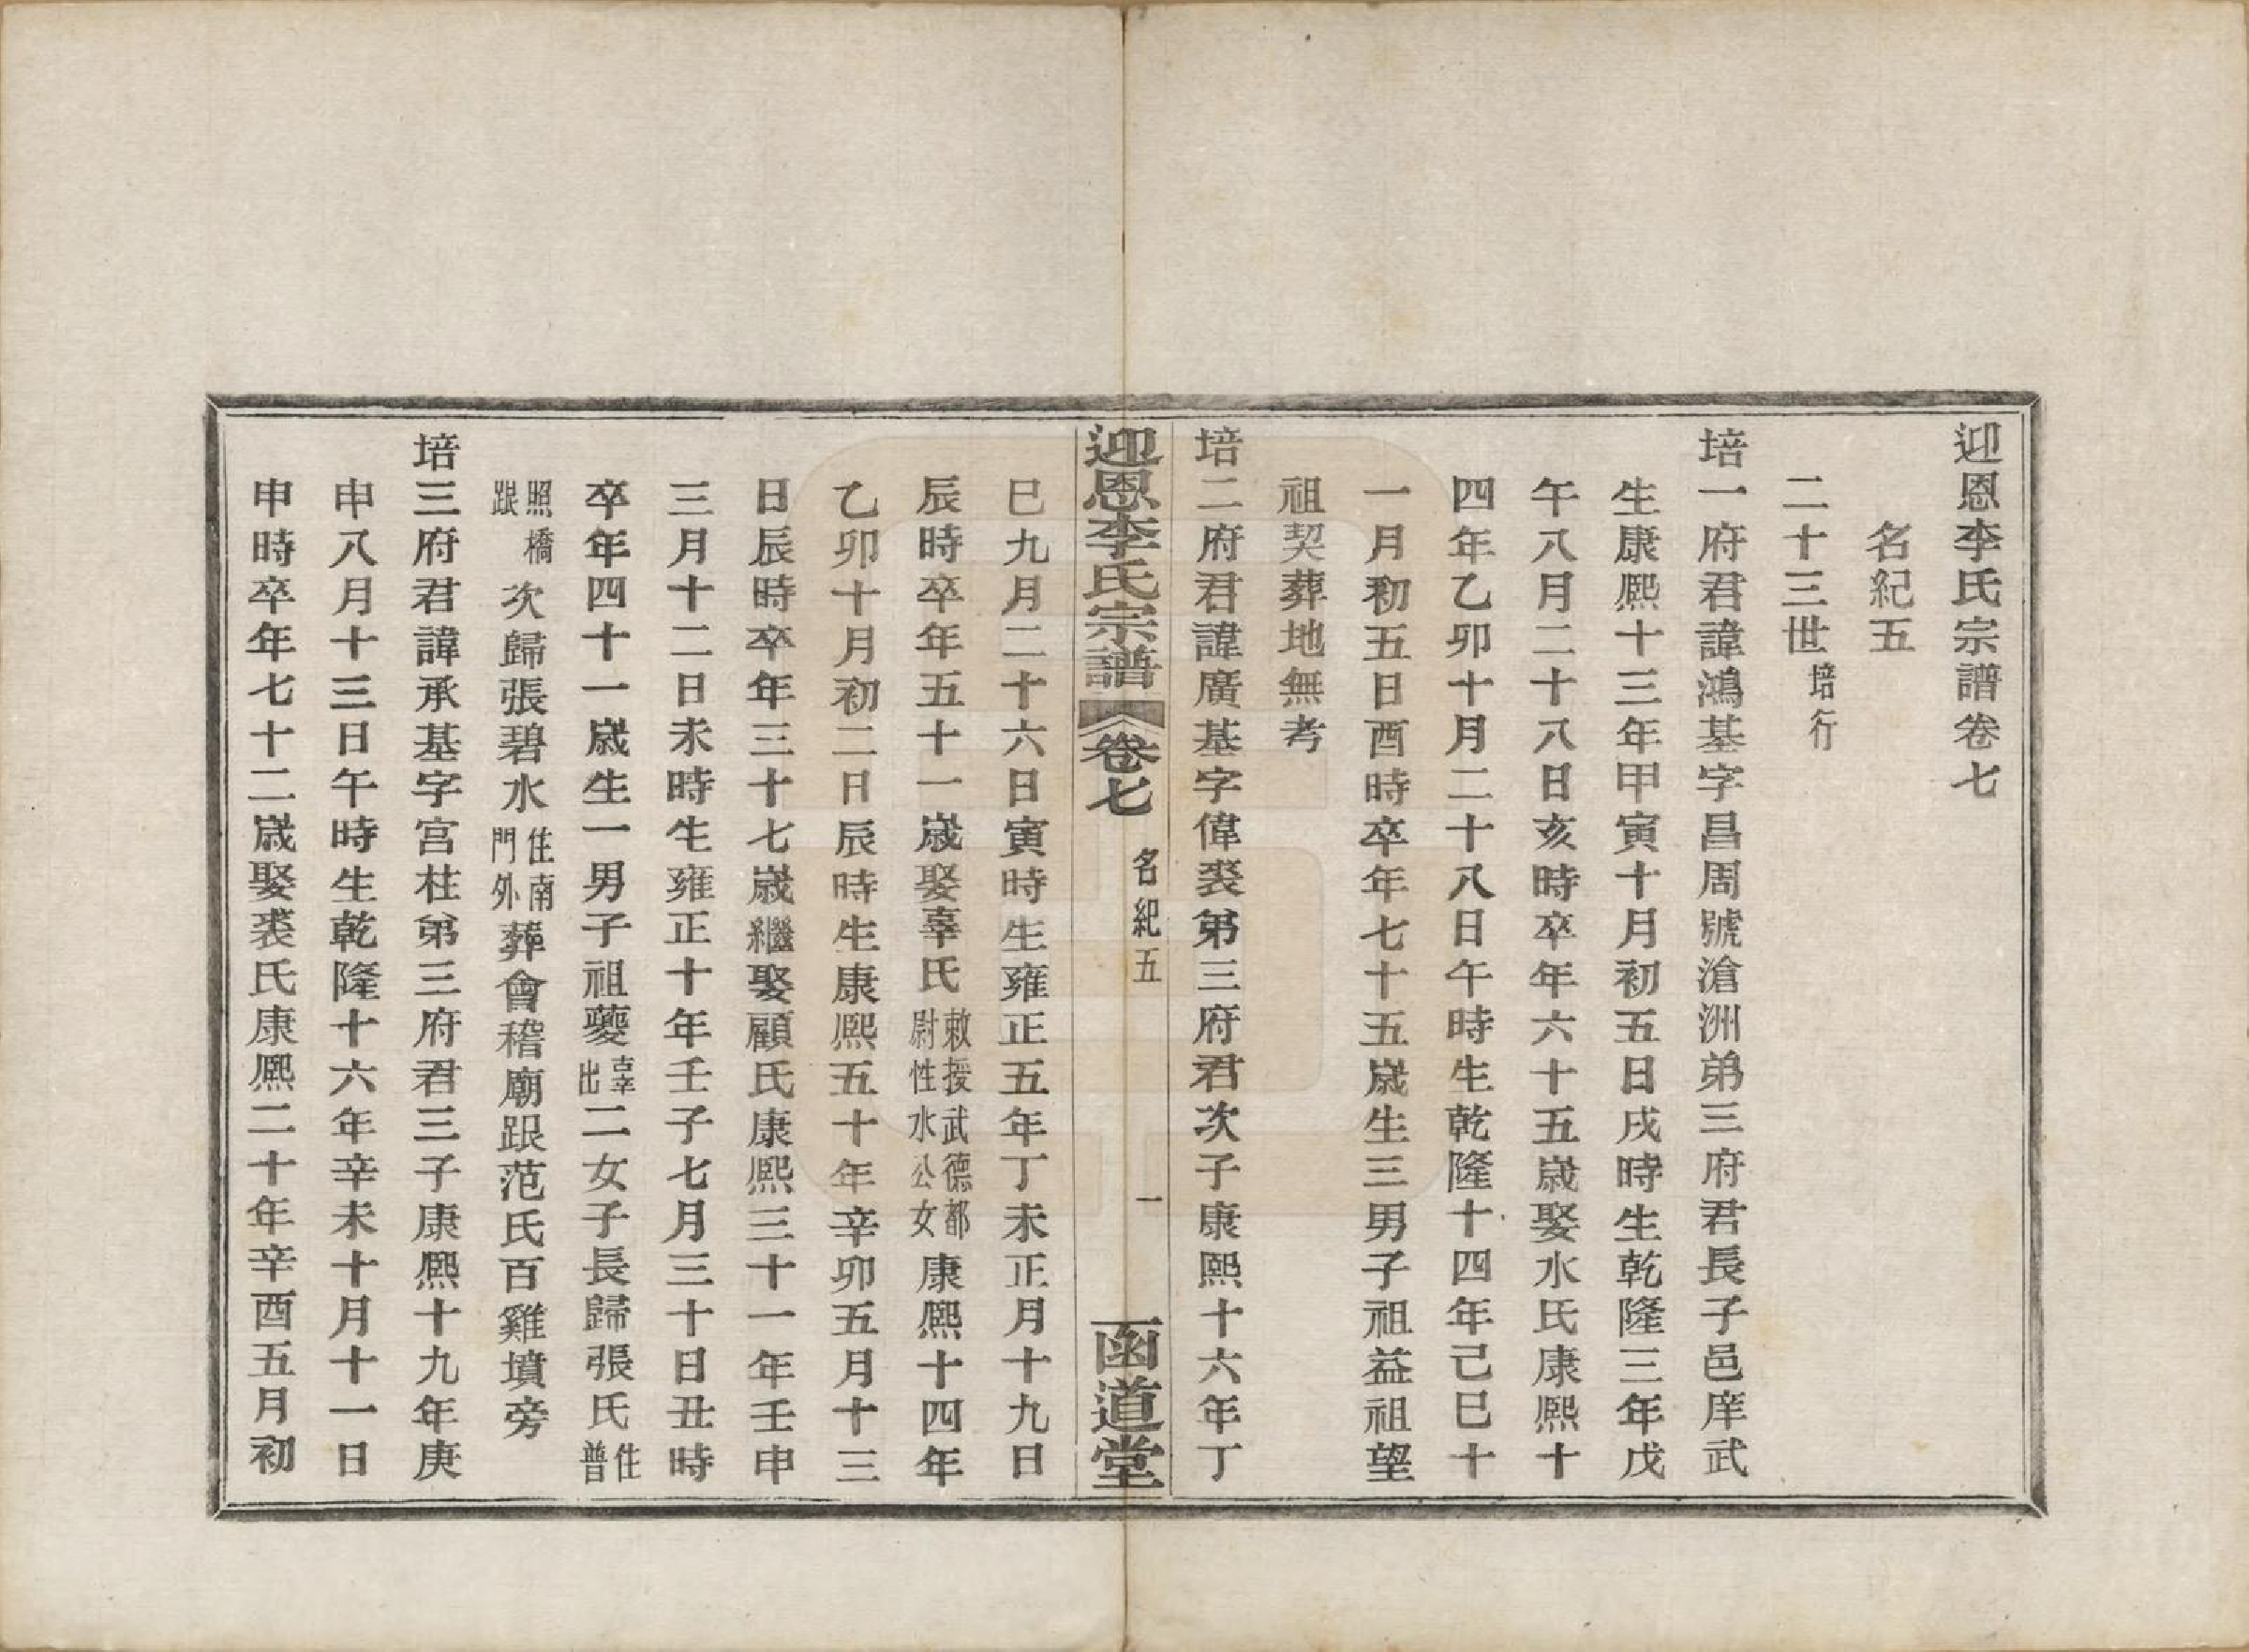 迎恩李氏宗譜卷七
名紀五
二十三世培行
培一府君諱鴻基字昌周號滄洲弟三府君長子邑庠武
生康熙十三年甲寅十月初五日戌時生乾隆三年戊
午八月二十八日亥時卒年六十五歲娶水氏康熙十
四年乙卯十月二十八日午時生乾隆十四年己巳十
一月初五日酉時卒年七十五歲生三男子祖益祖望
祖契葬地無考
培二府君諱廣基字偉裘弟三府君次子康熙十六年丁
迎恩李氏宗譜 卷七 名紀五 一 函道堂
巳九月二十六日寅時生雍正五年丁未正月十九日
辰時卒年五十一歲娶辜氏敕授武德都尉性水公女康熙十四年
乙卯十月初二日辰時生康熙五十年辛卯五月十三
日辰時卒年三十七歲繼娶顧氏康熙三十一年壬申
三月十二日未時生雍正十年壬子七月三十日丑時
卒年四十一歲生一男子祖夔辜出二女子長歸張氏住普
照橋跟次歸張碧水住南門外葬會稽廟跟范氏百雞墳旁
培三府君諱承基字宮柱弟三府君三子康熙十九年庚
申八月十三日午時生乾隆十六年辛未十月十一日
申時卒年七十二歲娶裘氏康熙二十年辛酉五月初